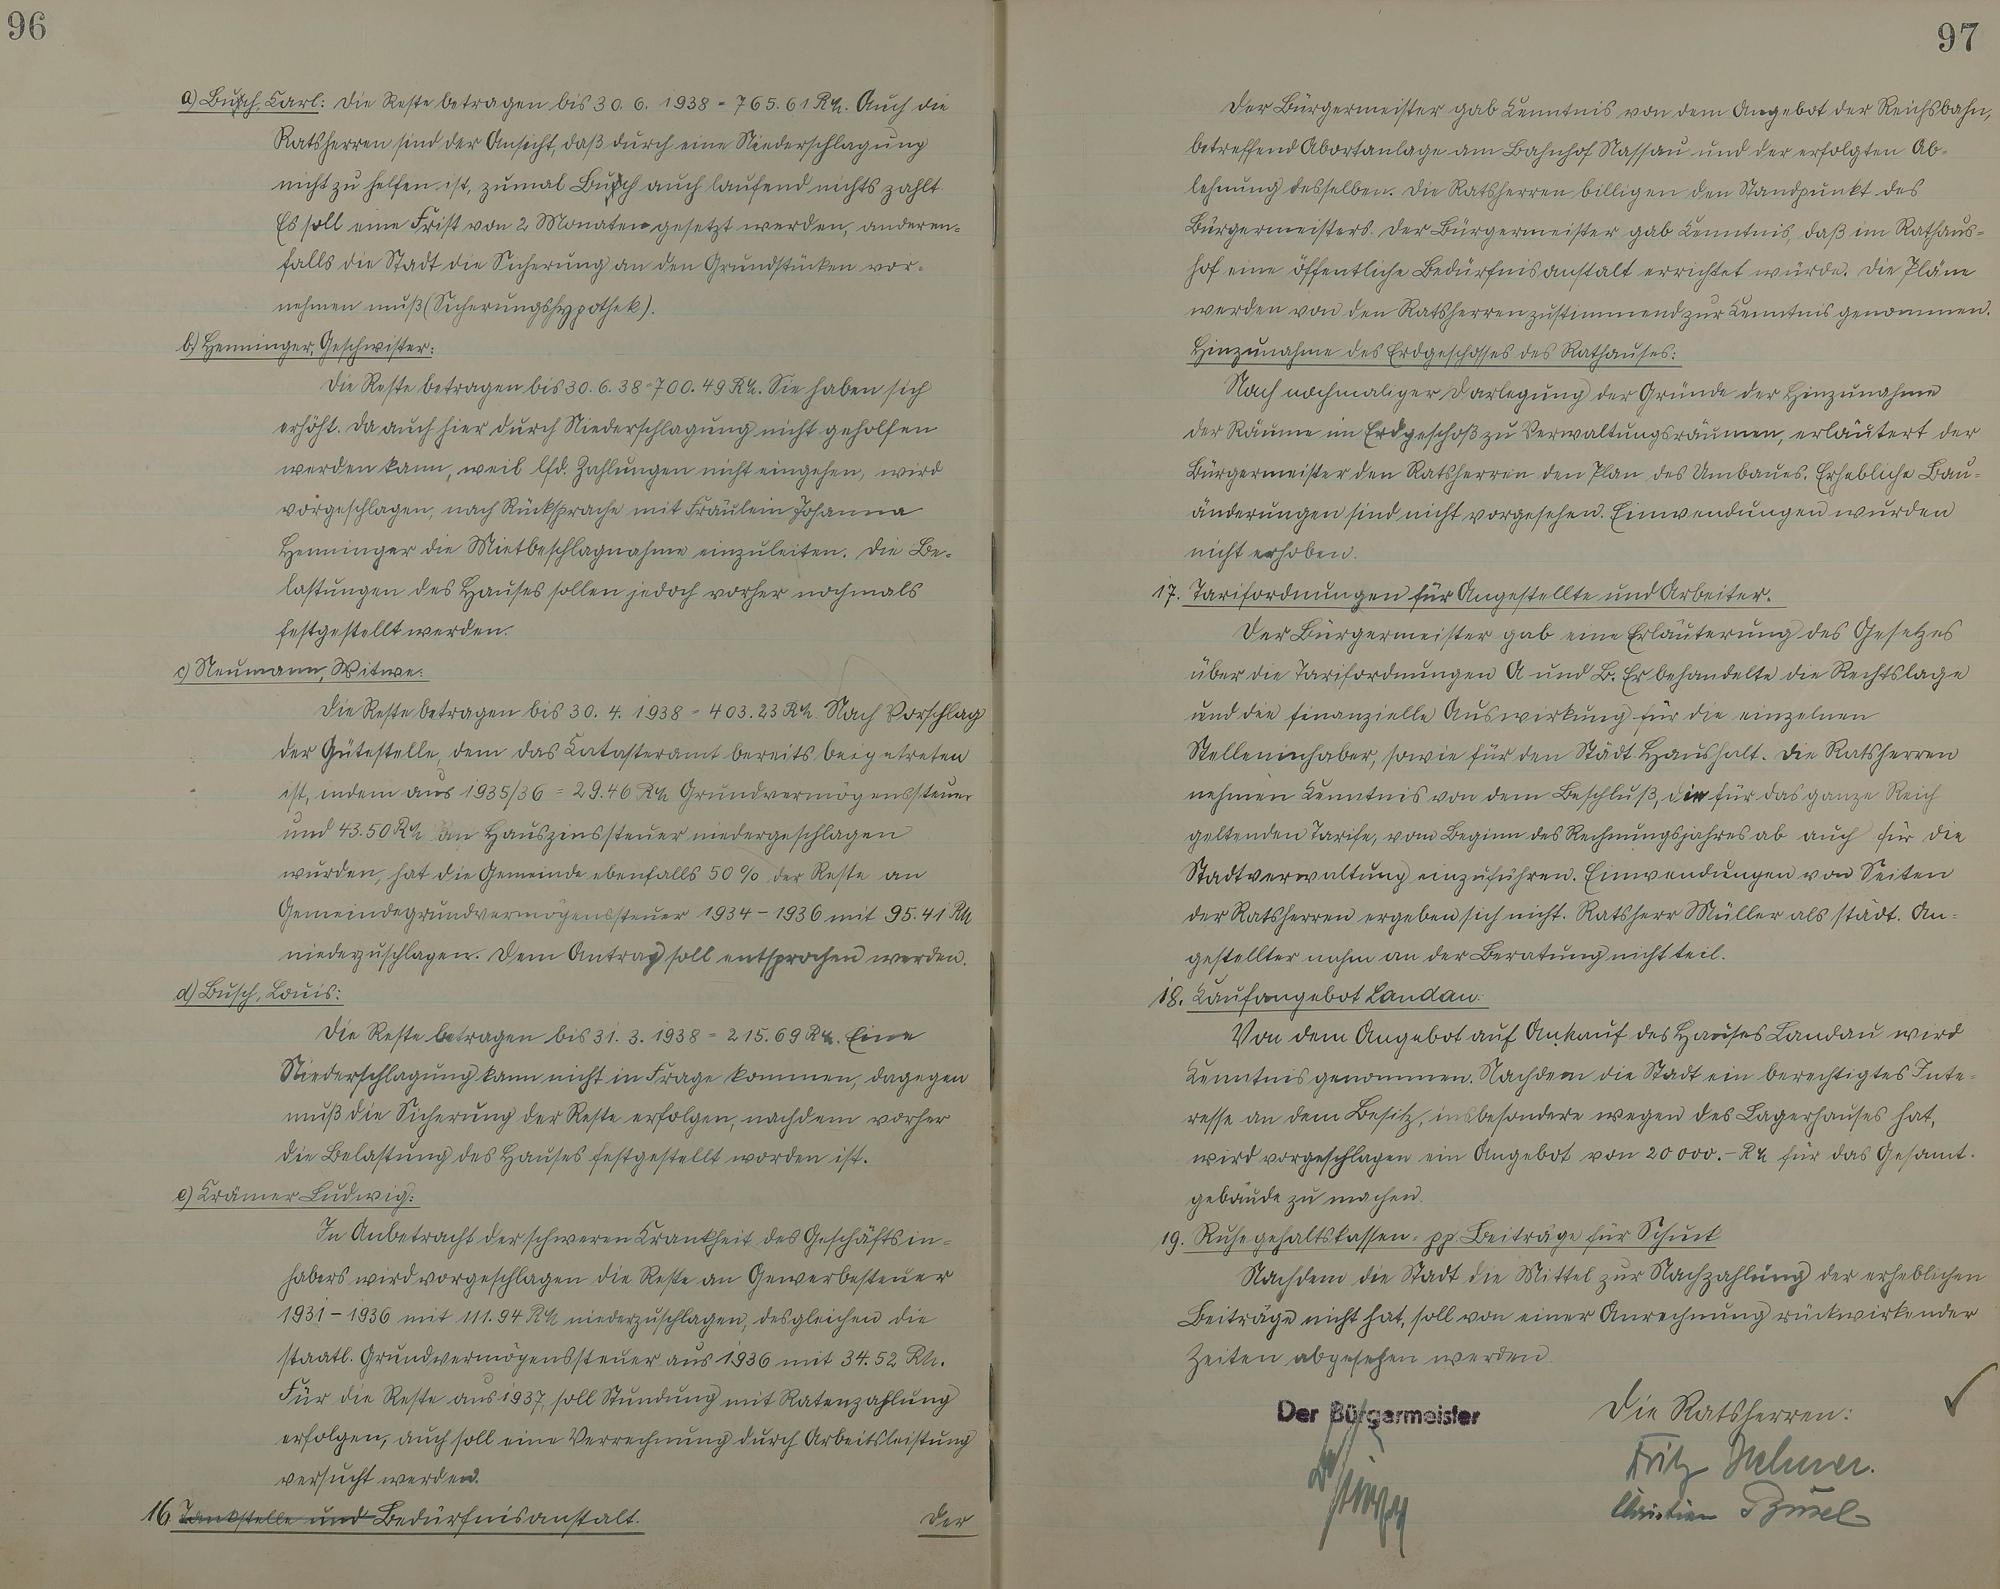 96
a) Busch, Carl: Die Reste betragen bis 30. 6. 1938 = 765.61 RM. Auch die
Ratsherren sind der Ansicht, daß durch eine Niederschlagung
nicht zu helfen ist, zumal Busch auch laufend nichts zahlt.
Es soll eine Frist von 2 Monaten gesetzt werden, anderen-
falls die Stadt die Sicherung an den Grundstücken vor-
nehmen muß (Sicherungshypothek).
b) Henninger, Geschwister:
Die Reste betragen bis 30. 6. 38 = 700.49 RM. Sie haben sich
erhöht. Da auch hier durch Niederschlagung nicht geholfen
werden kann, weil lfd. Zahlungen nicht eingehen, wird
vorgeschlagen, nach Rücksprache mit Fräulein Johanna
Henninger die Mietbeschlagnahme einzuleiten. Die Be-
lastungen des Hauses sollen jedoch vorher nochmals
festgestellt werden.
c) Neumann, Witwe:
Die Reste betragen bis 30. 4. 1938 = 403.23 RM. Nach Vorschlag
der Gütestelle, dem das Katasteramt bereits beigetreten
ist, indem aus 1935/36 = 29.46 RM Grundvermögenssteuer
und 43.50 RM an Hauszinssteuer niedergeschlagen
wurden, hat die Gemeinde ebenfalls 50 % der Reste an
Gemeindegrundvermögenssteuer 1934 - 1936 mit 95.41 RM
niederzuschlagen. Dem Antrag soll entsprochen werden.
d) Busch, Louis:
Die Reste betragen bis 31. 3. 1938 = 215.69 RM. Eine
Niederschlagung kann nicht in Frage kommen, dagegen
muß die Sicherung der Reste erfolgen, nachdem vorher
die Belastung des Hauses festgestellt worden ist.
e) Krämer Ludwig:
In Anbetracht der schweren Krankheit des Geschäftsin-
habers wird vorgeschlagen die Reste an Gewerbesteuer
1931 - 1936 mit 111.94 RM niederzuschlagen, desgleichen die
staatl. Grundvermögenssteuer aus 1936 mit 34.52 RM.
Für die Reste aus 1937, soll Stundung mit Ratenzahlung
erfolgen, auch soll eine Verrechnung durch Arbeitsleistung
versucht werden.
16. Tankstelle und Bedürfnisanstalt.
Der
97
Der Bürgermeister gab Kenntnis von dem Angebot der Reichsbahn,
betreffend Abortanlage am Bahnhof Nassau und der erfolgten Ab-
lehnung desselben. Die Ratsherren billigen den Standpunkt des
Bürgermeisters. Der Bürgermeister gab Kenntnis, daß im Rathaus-
hof eine öffentliche Bedürfnisanstalt errichtet würde. Die Pläne
werden von den Ratsherren zustimmend zur Kenntnis genommen.
Hinzunahme des Erdgeschosses des Rathauses:
Nach nochmaliger Darlegung der Gründe der Hinzunahme
der Räume im Erdgeschoß zu Verwaltungsräumen, erläutert der
Bürgermeister den Ratsherren den Plan des Umbaues. Erhebliche Bau-
änderungen sind nicht vorgesehen. Einwendungen wurden
nicht erhoben.
17. Tarifordnungen für Angestellte und Arbeiter.
Der Bürgermeister gab eine Erläuterung des Gesetzes
über die Tarifordnungen A und B. Er behandelte die Rechtslage
und die finanzielle Auswirkung für die einzelnen
Stelleninhaber, sowie für den Städt. Haushalt. Die Ratsherren
nehmen Kenntnis von dem Beschluß, die für das ganze Reich
geltenden Tarife, vom Beginn des Rechnungsjahres ab auch für die
Stadtverwaltung einzuführen. Einwendungen von Seiten
der Ratsherren ergeben sich nicht. Ratsherr Müller als städt. An-
gestellter nahm an der Beratung nicht teil.
18. Kaufangebot Landau:
Von dem Angebot auf Ankauf des Hauses Landau wird
Kenntnis genommen. Nachdem die Stadt ein berechtigtes Inte-
resse an dem Besitz, insbesondere wegen des Lagerhauses hat,
wird vorgeschlagen ein Angebot von 20 000.- RM für das Gesamt-
gebäude zu machen.
19. Ruhegehaltskassen- pp. Beiträge für Schurk
Nachdem die Stadt die Mittel zur Nachzahlung der erheblichen
Beiträge nicht hat, soll von einer Anrechnung rückwirkender
Zeiten abgesehen werden.
Der Bürgermeister
Die Ratsherren:
Fritz
Christian